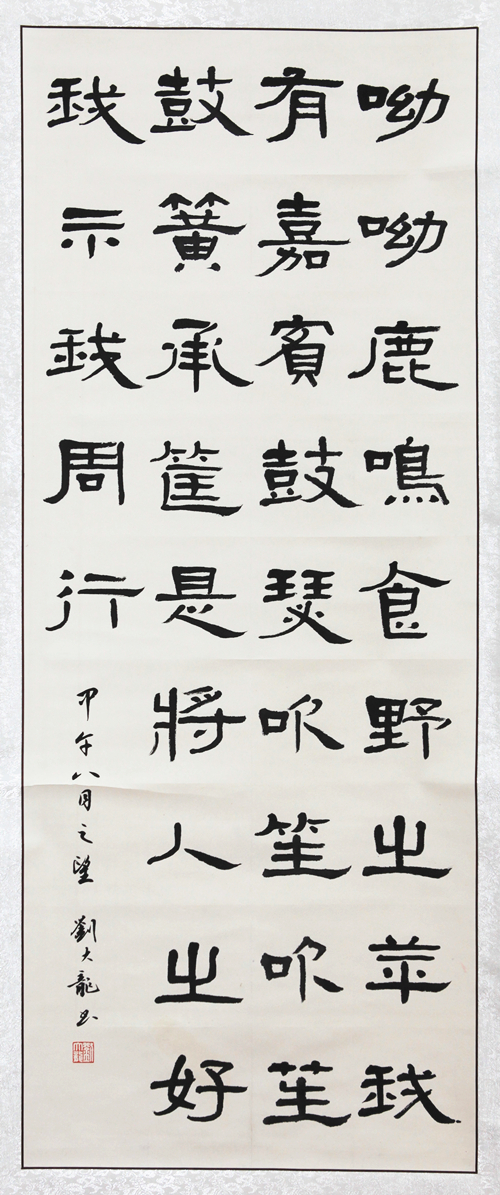 呦呦鹿鳴食野之苹我
有嘉賓鼓瑟吹笙吹笙
鼓簧承筐是將人之好
我示我周行
甲午八月之望 劉大龍书